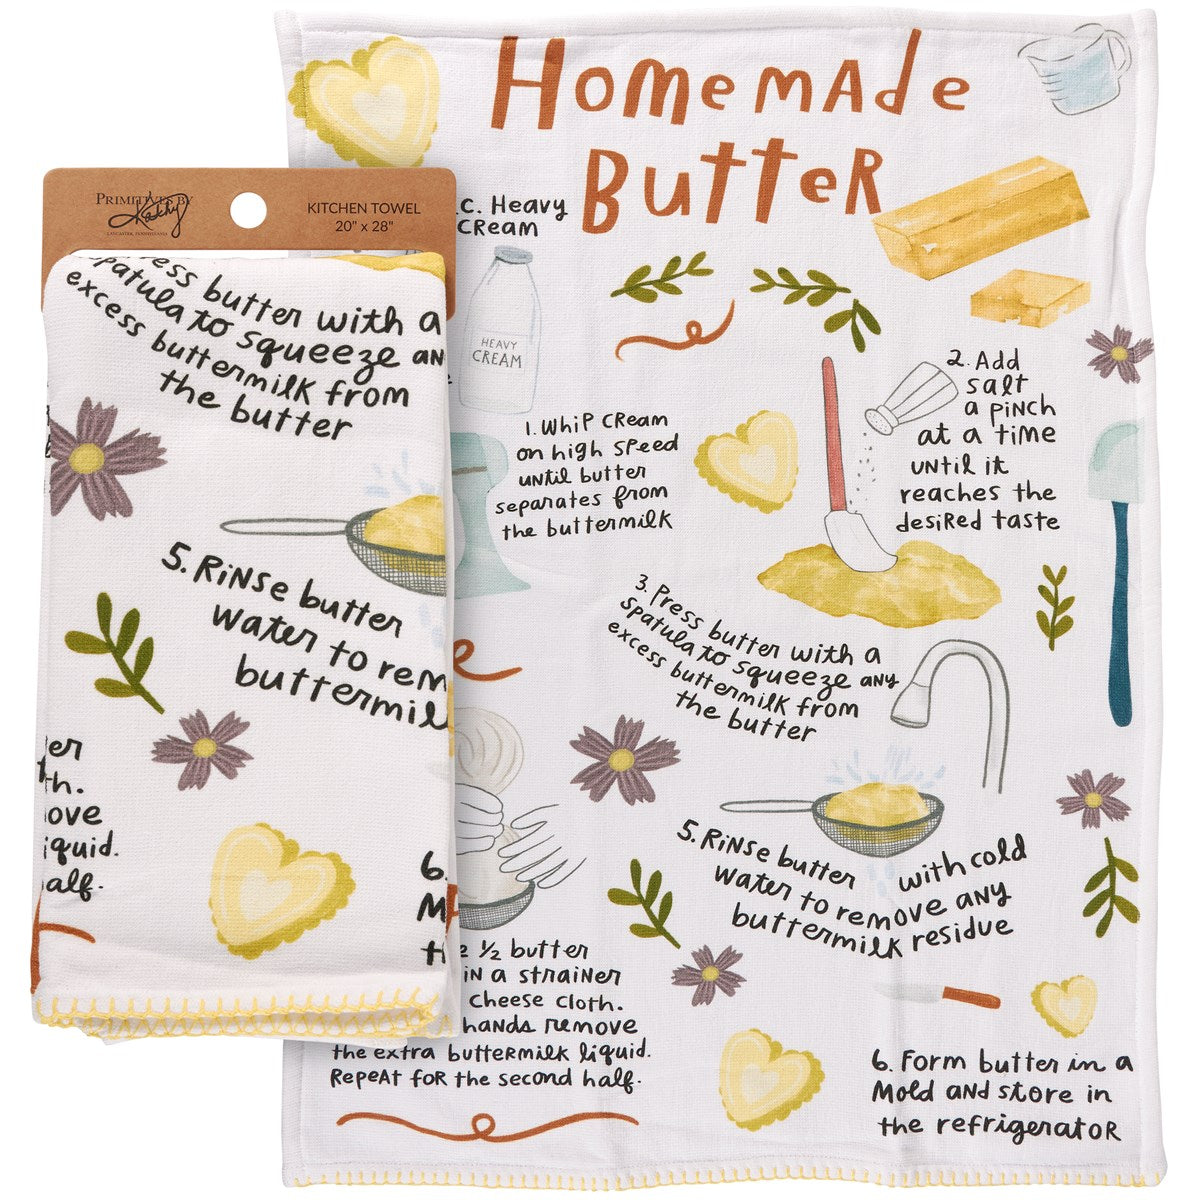 Homemade
Butter
PRIMITIVES BY
Kathy
LANCASTER, PENNSYLVANIA
KITCHEN TOWEL
20" x 28"
c. Heavy
cream
HEAVY
CREAM
1. Whip cream
on high speed
until butter
separates from
the buttermilk
2. Add
salt
a pinch
at a time
until it
reaches the
desired taste
3. Press butter with a
spatula to squeeze any
excess buttermilk from
the butter
5. Rinse butter with cold
water to remove any
buttermilk residue
½ butter
in a strainer
cheese cloth.
hands remove
the extra buttermilk liquid.
Repeat for the second half.
6. Form butter in a
mold and store in
the refrigerator
ess butter with a
spatula to squeeze an
excess buttermilk from
the butter
5. Rinse butter
water to rem
buttermil
er
th.
ove
iquid.
alf.
6.
M
th